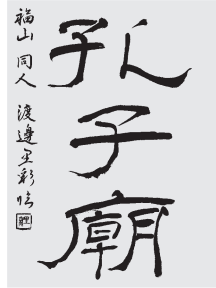 孔子廟
福山 同人 渡邊 彩 臨